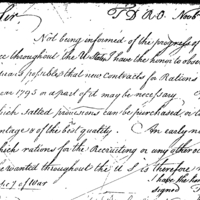 Sir T D A O Novb
Not being informed of the progress of
ce throughout the U States I have the honor to observe
is possible that new Contracts for Rations
year 1793 or a part of it may be necessary
which salted provisions can be purchased, in
antages of the best quality. An early
which rations for the Recruiting or any other
be wanted throughout the U S is therefore
I have the
of War signed